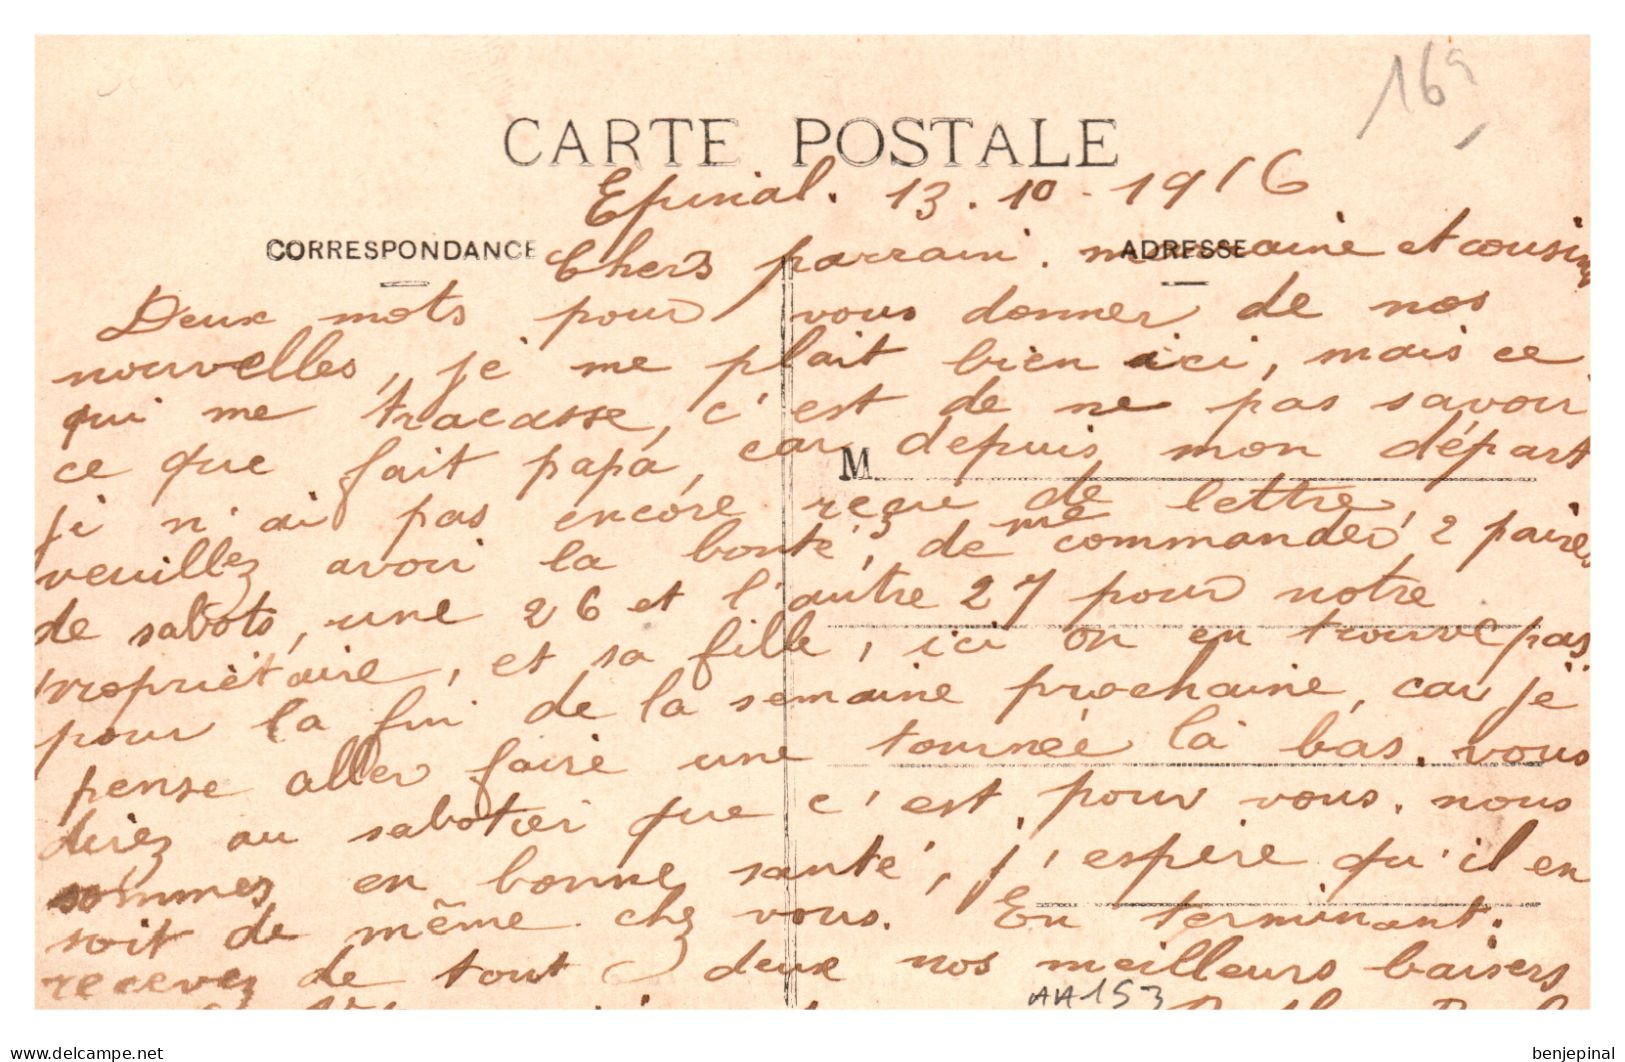 16
CARTE POSTALE
Epinal. 13.10-1916
CORRESPONDANCE
ADRESSE
Chers parrain. marraine et cousin
Deux mots pour vous donner de nos
nouvelles, je me plait bien ici, mais ce
qui me tracasse, c'est de ne pas savoir
ce que fait papa, car depuis mon départ
M
je n'ai pas encore reçu de lettre,
veuillez avoir la bonté, de me commander 2 paires
de sabots, une 26 et l'autre 27 pour notre
propriètaire, et sa fille, ici on en trouve pas
pour la fin de la semaine prochaine, car je
pense aller faire une tournée là bas. vous
direz au sabotier que c'est pour vous. nous
sommes en bonne santé, j'espère qu'il en
soit de même chez vous. En terminant.
recevez de tout deux nos meilleurs baisers
AA153
delcampe.net
benjepinal